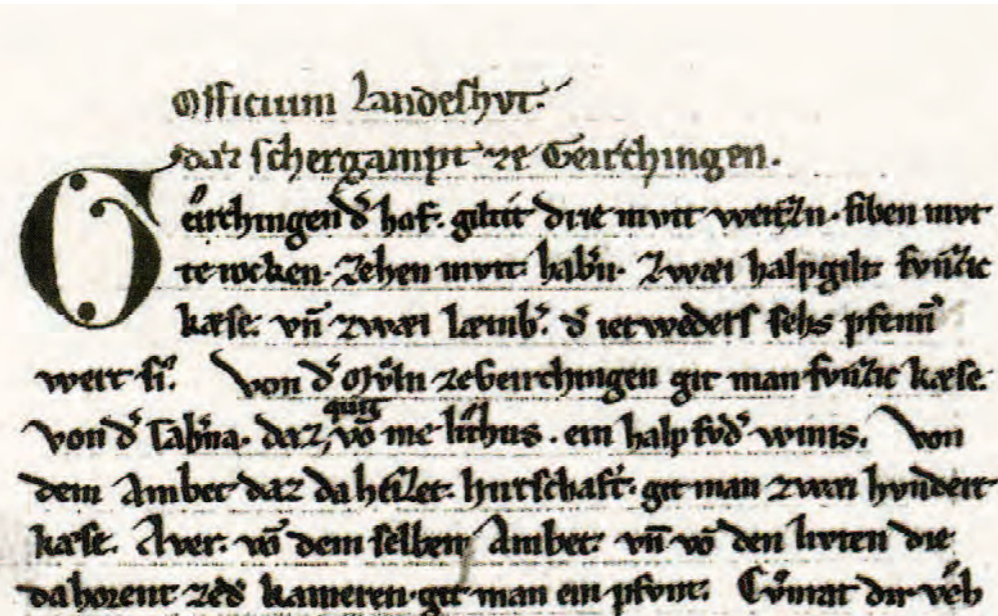 Officium Landeshvt.
daz schergampt ze Geirchingen.
Geirchingen dˢ hof. giltit drie mvtt weitzn. siben mvt
te rocken. Zehen mvtt habˢn. Zwæi halpgilt. fvnfzic
kæse. vn̄ zwæi læmbˢ. dˢ ietwederſ sehs pfenn
wert si. Von dˢ Mvln ze Geirchingen git man fvnfzic kæse.
von dˢ Tabˢna. daz, vō me lithus. ein halp fvdˢ winis. Von
dem Ambet daz da heizet. hirtschaft. git man zwæi hvndert
kæse. Aver. vō dem selben Ambet. vn̄ vō den livten die
da horent zedˢ kameren. git man ein pfvnt.